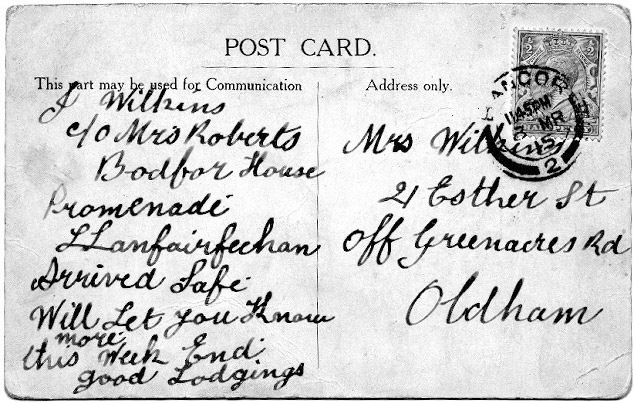 POST CARD.
This part may be used for Communication
Address only.
J Wilkins
c/o Mrs Roberts
Bodfor House
Promenade
LLanfairfechan
Arrived Safe
Will Let you Know
more
this Week End
good Lodgings
Mrs Wilkins
21 Esther St
Off Greenacres Rd
Oldham
BANGOR
11.45PM
MR
15
2
½ ½